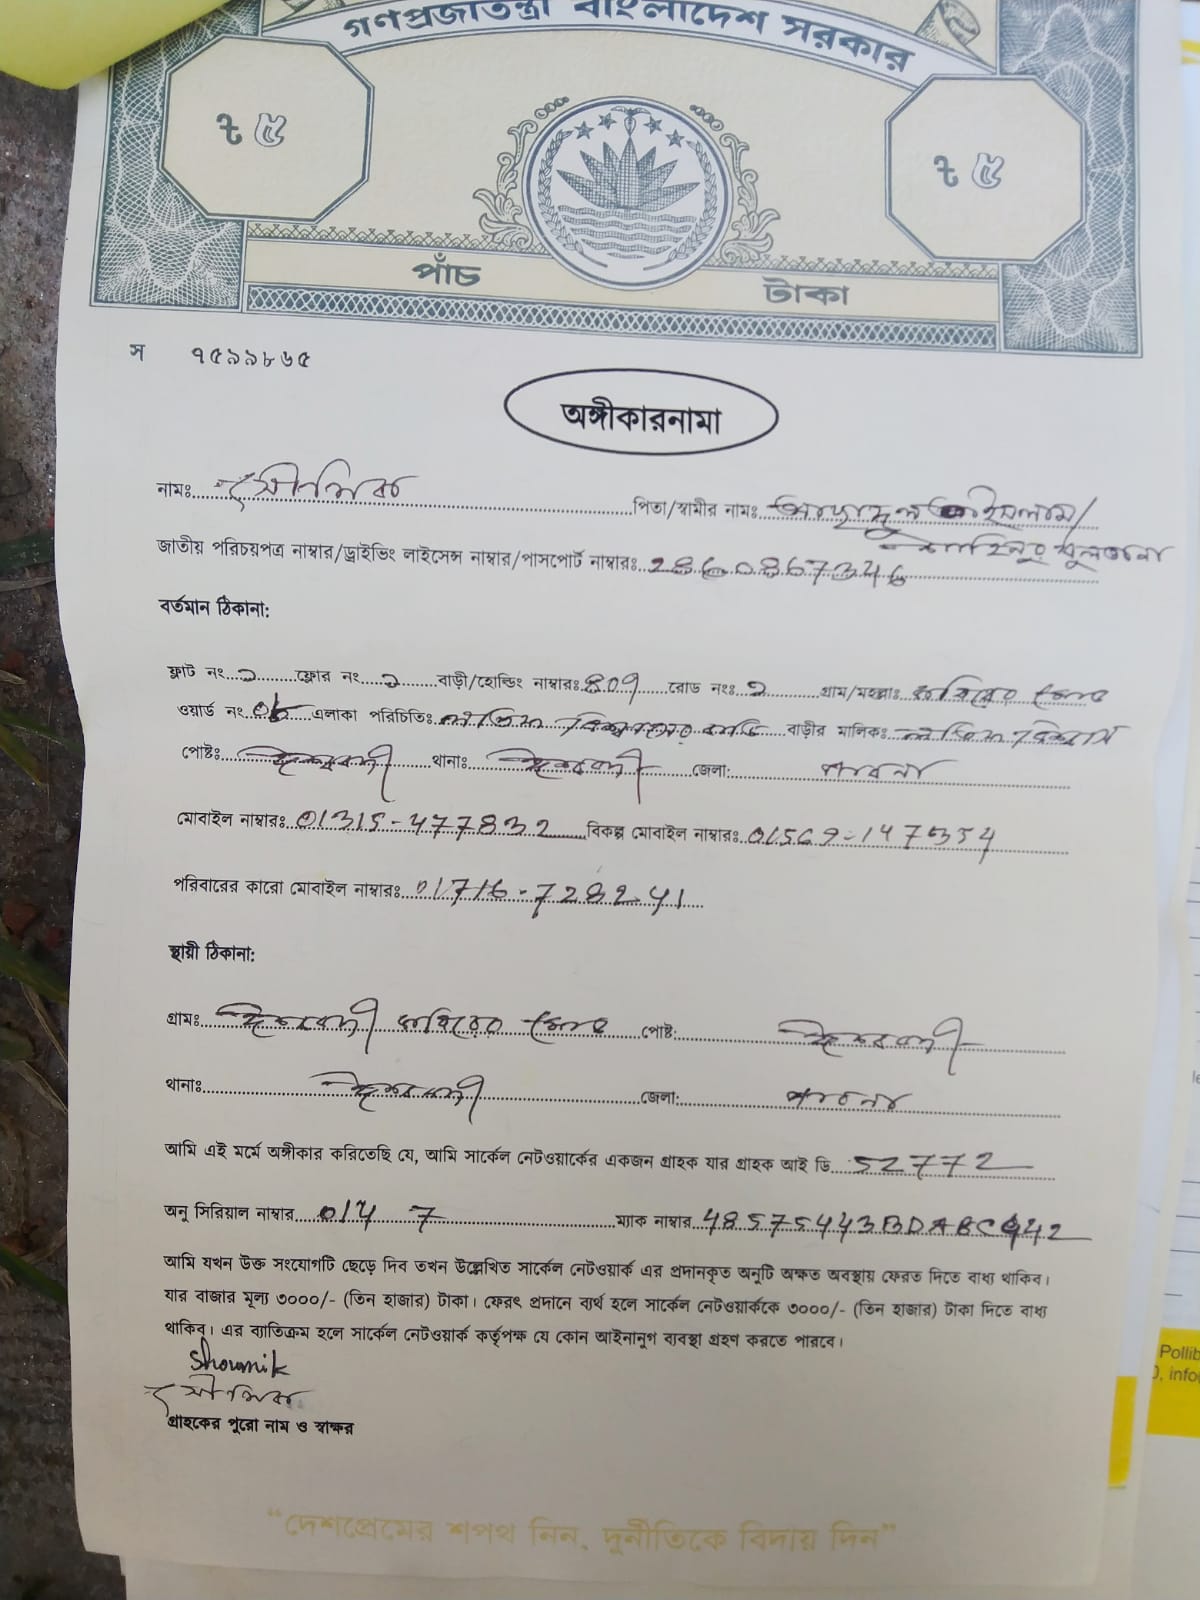 গণপ্রজাতন্ত্রী বাংলাদেশ সরকার
৳ ৫
৳ ৫
পাঁচ টাকা
স ৭৫৯৯৮৬৫
অঙ্গীকারনামা
নামঃ সৌমিক পিতা/স্বামীর নামঃ ইসলাম/
সুলতানা
জাতীয় পরিচয়পত্র নাম্বার/ড্রাইভিং লাইসেন্স নাম্বার/পাসপোর্ট নাম্বারঃ 2860867346
বর্তমান ঠিকানা:
ফ্লাট নং ১ ফ্লোর নং ১ বাড়ী/হোল্ডিং নাম্বারঃ ৪০৭ রোড নংঃ ১ গ্রাম/মহল্লাঃ
ওয়ার্ড নং 06 এলাকা পরিচিতিঃ বাড়ি বাড়ীর মালিকঃ বিশ্বাস
পোষ্টঃ ঈশ্বরদী থানাঃ ঈশ্বরদী জেলা: পাবনা
মোবাইল নাম্বারঃ 01315-477832 বিকল্প মোবাইল নাম্বারঃ
পরিবারের কারো মোবাইল নাম্বারঃ 01716-728241
স্থায়ী ঠিকানা:
গ্রামঃ ঈশ্বরদী পোষ্ট: ঈশ্বরদী
থানাঃ ঈশ্বরদী জেলা: পাবনা
আমি এই মর্মে অঙ্গীকার করিতেছি যে, আমি সার্কেল নেটওয়ার্কের একজন গ্রাহক যার গ্রাহক আই ডি 52772
অনু সিরিয়াল নাম্বার 014 7 ম্যাক নাম্বার 48575443BDABC442
আমি যখন উক্ত সংযোগটি ছেড়ে দিব তখন উল্লেখিত সার্কেল নেটওয়ার্ক এর প্রদানকৃত অনুটি অক্ষত অবস্থায় ফেরত দিতে বাধ্য থাকিব।
যার বাজার মূল্য ৩০০০/- (তিন হাজার) টাকা। ফেরৎ প্রদানে ব্যর্থ হলে সার্কেল নেটওয়ার্ককে ৩০০০/- (তিন হাজার) টাকা দিতে বাধ্য
থাকিব। এর ব্যাতিক্রম হলে সার্কেল নেটওয়ার্ক কর্তৃপক্ষ যে কোন আইনানুগ ব্যবস্থা গ্রহণ করতে পারবে।
Shoumik
সৌমিক
গ্রাহকের পুরো নাম ও স্বাক্ষর
"দেশপ্রেমের শপথ নিন, দুর্নীতিকে বিদায় দিন"